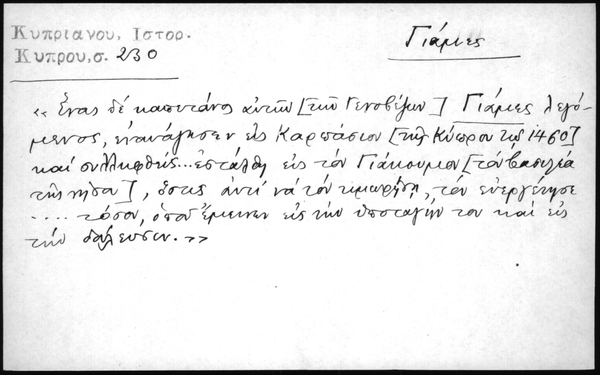 Κυπριανου, Ιστορ.
Κυπρου, σ. 230
Γιάμες
«Ἕνας δέ καπιτάνος αὐτῶν [τῶν Γενοβέζων] Γιάμες λεγό-
μενος, ἐναυάγησεν εἰς Καρπάσιον [τῆς Κύπρου τῷ 1460]
καί συλληφθείς... ἐστάλθη εἰς τόν Γιάκουμον [τόν βασιλέα
τῆς νήσου], ὅστις ἀντί νά τόν τιμωρήσῃ, τόν εὐεργέτησε
.... τόσον, ὁποῦ ἔμεινεν εἰς τήν ὑποταγήν του καί εἰς
τήν δούλευσιν.»